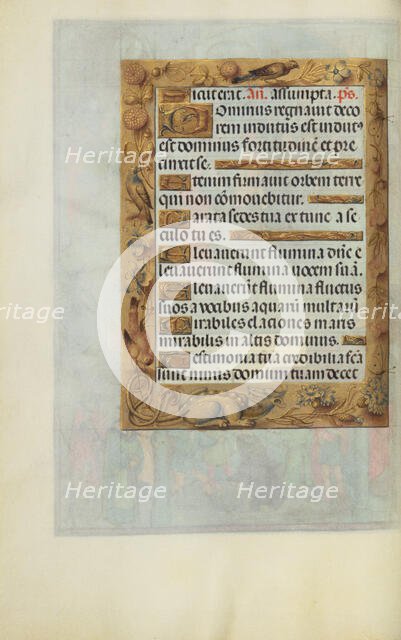 Sicut erat. Añ. assumpta. ps.
Dominus regnauit deco
rem indutus est indutus
est dominus fortitudinē et pre
cinxit se.
Etenim firmauit orbem terre
qui non cōmouebitur.
Parata sedes tua ex tunc a se
culo tu es.
Eleuauerunt flumina dūe
eleuauerunt flumina uocem suā.
Eleuauerūt flumina fluctus
suos a uocibus aquarū multarū
Mirabiles elaciones maris
mirabilis in altis dominus.
Testimonia tua credibilia fca
sunt nimis domum tuam decet
Heritage Heritage
Heritage Heritage
Heritage Heritage